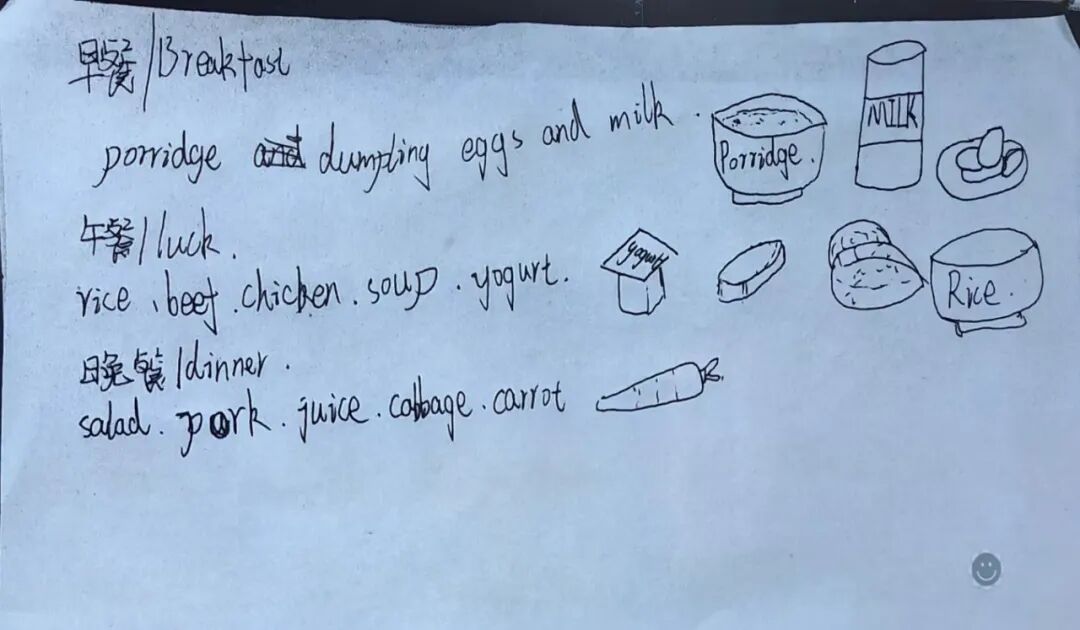 早餐/Breakfast
porridge and dumpling eggs and milk.
MILK
Porridge.
午餐/luck.
rice、beef.chicken.soup.yogurt.
yogurt
Rice.
晚餐/dinner.
salad.pork.juice.cabbage.carrot